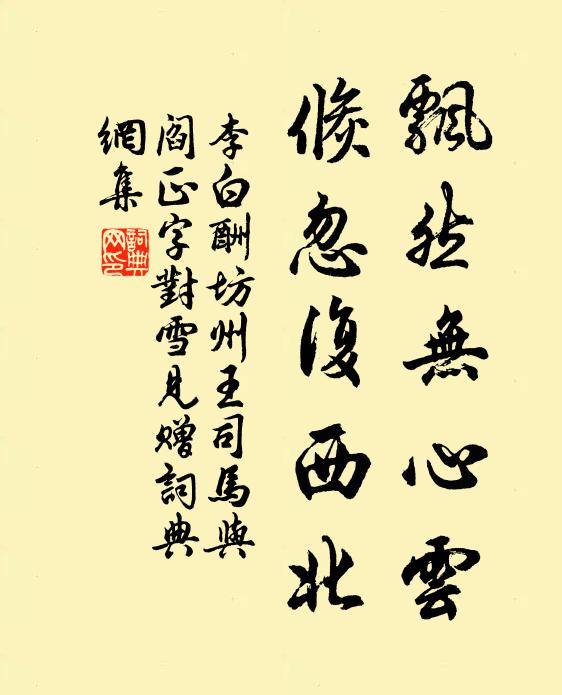 飄然無心雲
倏忽復西北
李白酬坊州王司馬與
閻正字對雪見贈詞典
網集
詞典
网印